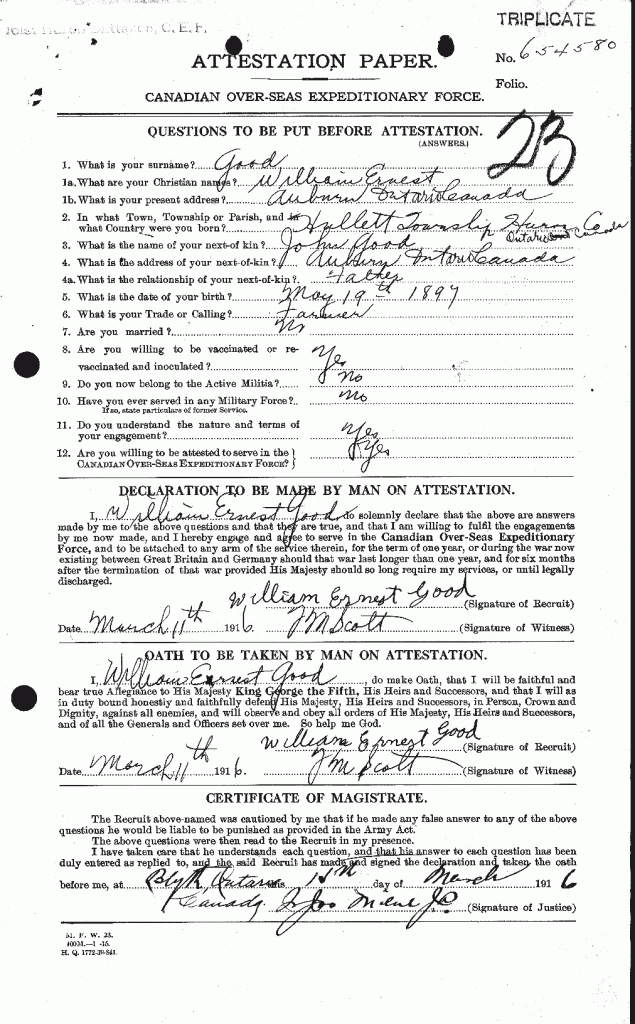 161st Huron Battalion, C. E. F.
TRIPLICATE
ATTESTATION PAPER.
No. 654580
Folio.
CANADIAN OVER-SEAS EXPEDITIONARY FORCE.
23
QUESTIONS TO BE PUT BEFORE ATTESTATION.
(ANSWERS.)
1. What is your surname? Good
1a. What are your Christian names? William Ernest
1b. What is your present address? Auburn Ontario Canada
2. In what Town, Township or Parish, and in
what Country were you born? Hullett Township Huron Co
Ontario Canada
3. What is the name of your next-of kin? John Good
4. What is the address of your next-of-kin? Auburn Ontario Canada
4a. What is the relationship of your next-of-kin? Father
5. What is the date of your birth? May 19th 1897
6. What is your Trade or Calling? Farmer
7. Are you married? No
8. Are you willing to be vaccinated or re-
vaccinated and inoculated? Yes
9. Do you now belong to the Active Militia? No
10. Have you ever served in any Military Force? No
If so, state particulars of former Service.
11. Do you understand the nature and terms of
your engagement? Yes
12. Are you willing to be attested to serve in the
CANADIAN OVER-SEAS EXPEDITIONARY FORCE? Yes
DECLARATION TO BE MADE BY MAN ON ATTESTATION.
I, William Ernest Good do solemnly declare that the above are answers
made by me to the above questions and that they are true, and that I am willing to fulfil the engagements
by me now made, and I hereby engage and agree to serve in the Canadian Over-Seas Expeditionary
Force, and to be attached to any arm of the service therein, for the term of one year, or during the war now
existing between Great Britain and Germany should that war last longer than one year, and for six months
after the termination of that war provided His Majesty should so long require my services, or until legally
discharged.
William Ernest Good (Signature of Recruit)
Date March 11th 1916. J M Scott (Signature of Witness)
OATH TO BE TAKEN BY MAN ON ATTESTATION.
I, William Ernest Good, do make Oath, that I will be faithful and
bear true Allegiance to His Majesty King George the Fifth, His Heirs and Successors, and that I will as
in duty bound honestly and faithfully defend His Majesty, His Heirs and Successors, in Person, Crown and
Dignity, against all enemies, and will observe and obey all orders of His Majesty, His Heirs and Successors,
and of all the Generals and Officers set over me. So help me God.
William Ernest Good (Signature of Recruit)
Date March 11th 1916. J M Scott (Signature of Witness)
CERTIFICATE OF MAGISTRATE.
The Recruit above-named was cautioned by me that if he made any false answer to any of the above
questions he would be liable to be punished as provided in the Army Act.
The above questions were then read to the Recruit in my presence.
I have taken care that he understands each question, and that his answer to each question has been
duly entered as replied to, and the said Recruit has made and signed the declaration and taken the oath
before me, at Blyth, Ontario this day of March 1916
Canada (Signature of Justice)
M. F. W. 23.
H. Q. 1772-39-841.